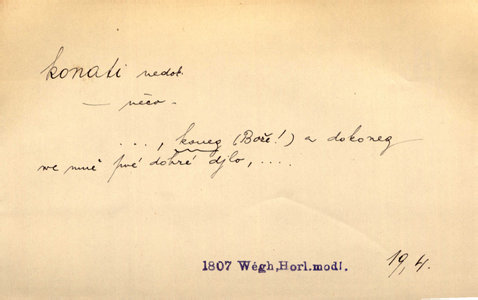 konati nedok.
— něco -
. . . , koneg (Bože!) a dokoneg
we mně své dobré djlo, . . . .
1807 Wégh,Horl.modl.
19,4.